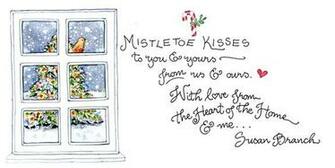 MISTLETOE KISSES
to you & yours
from us & ours.
With love from
the Heart of the Home
& me...
Susan Branch